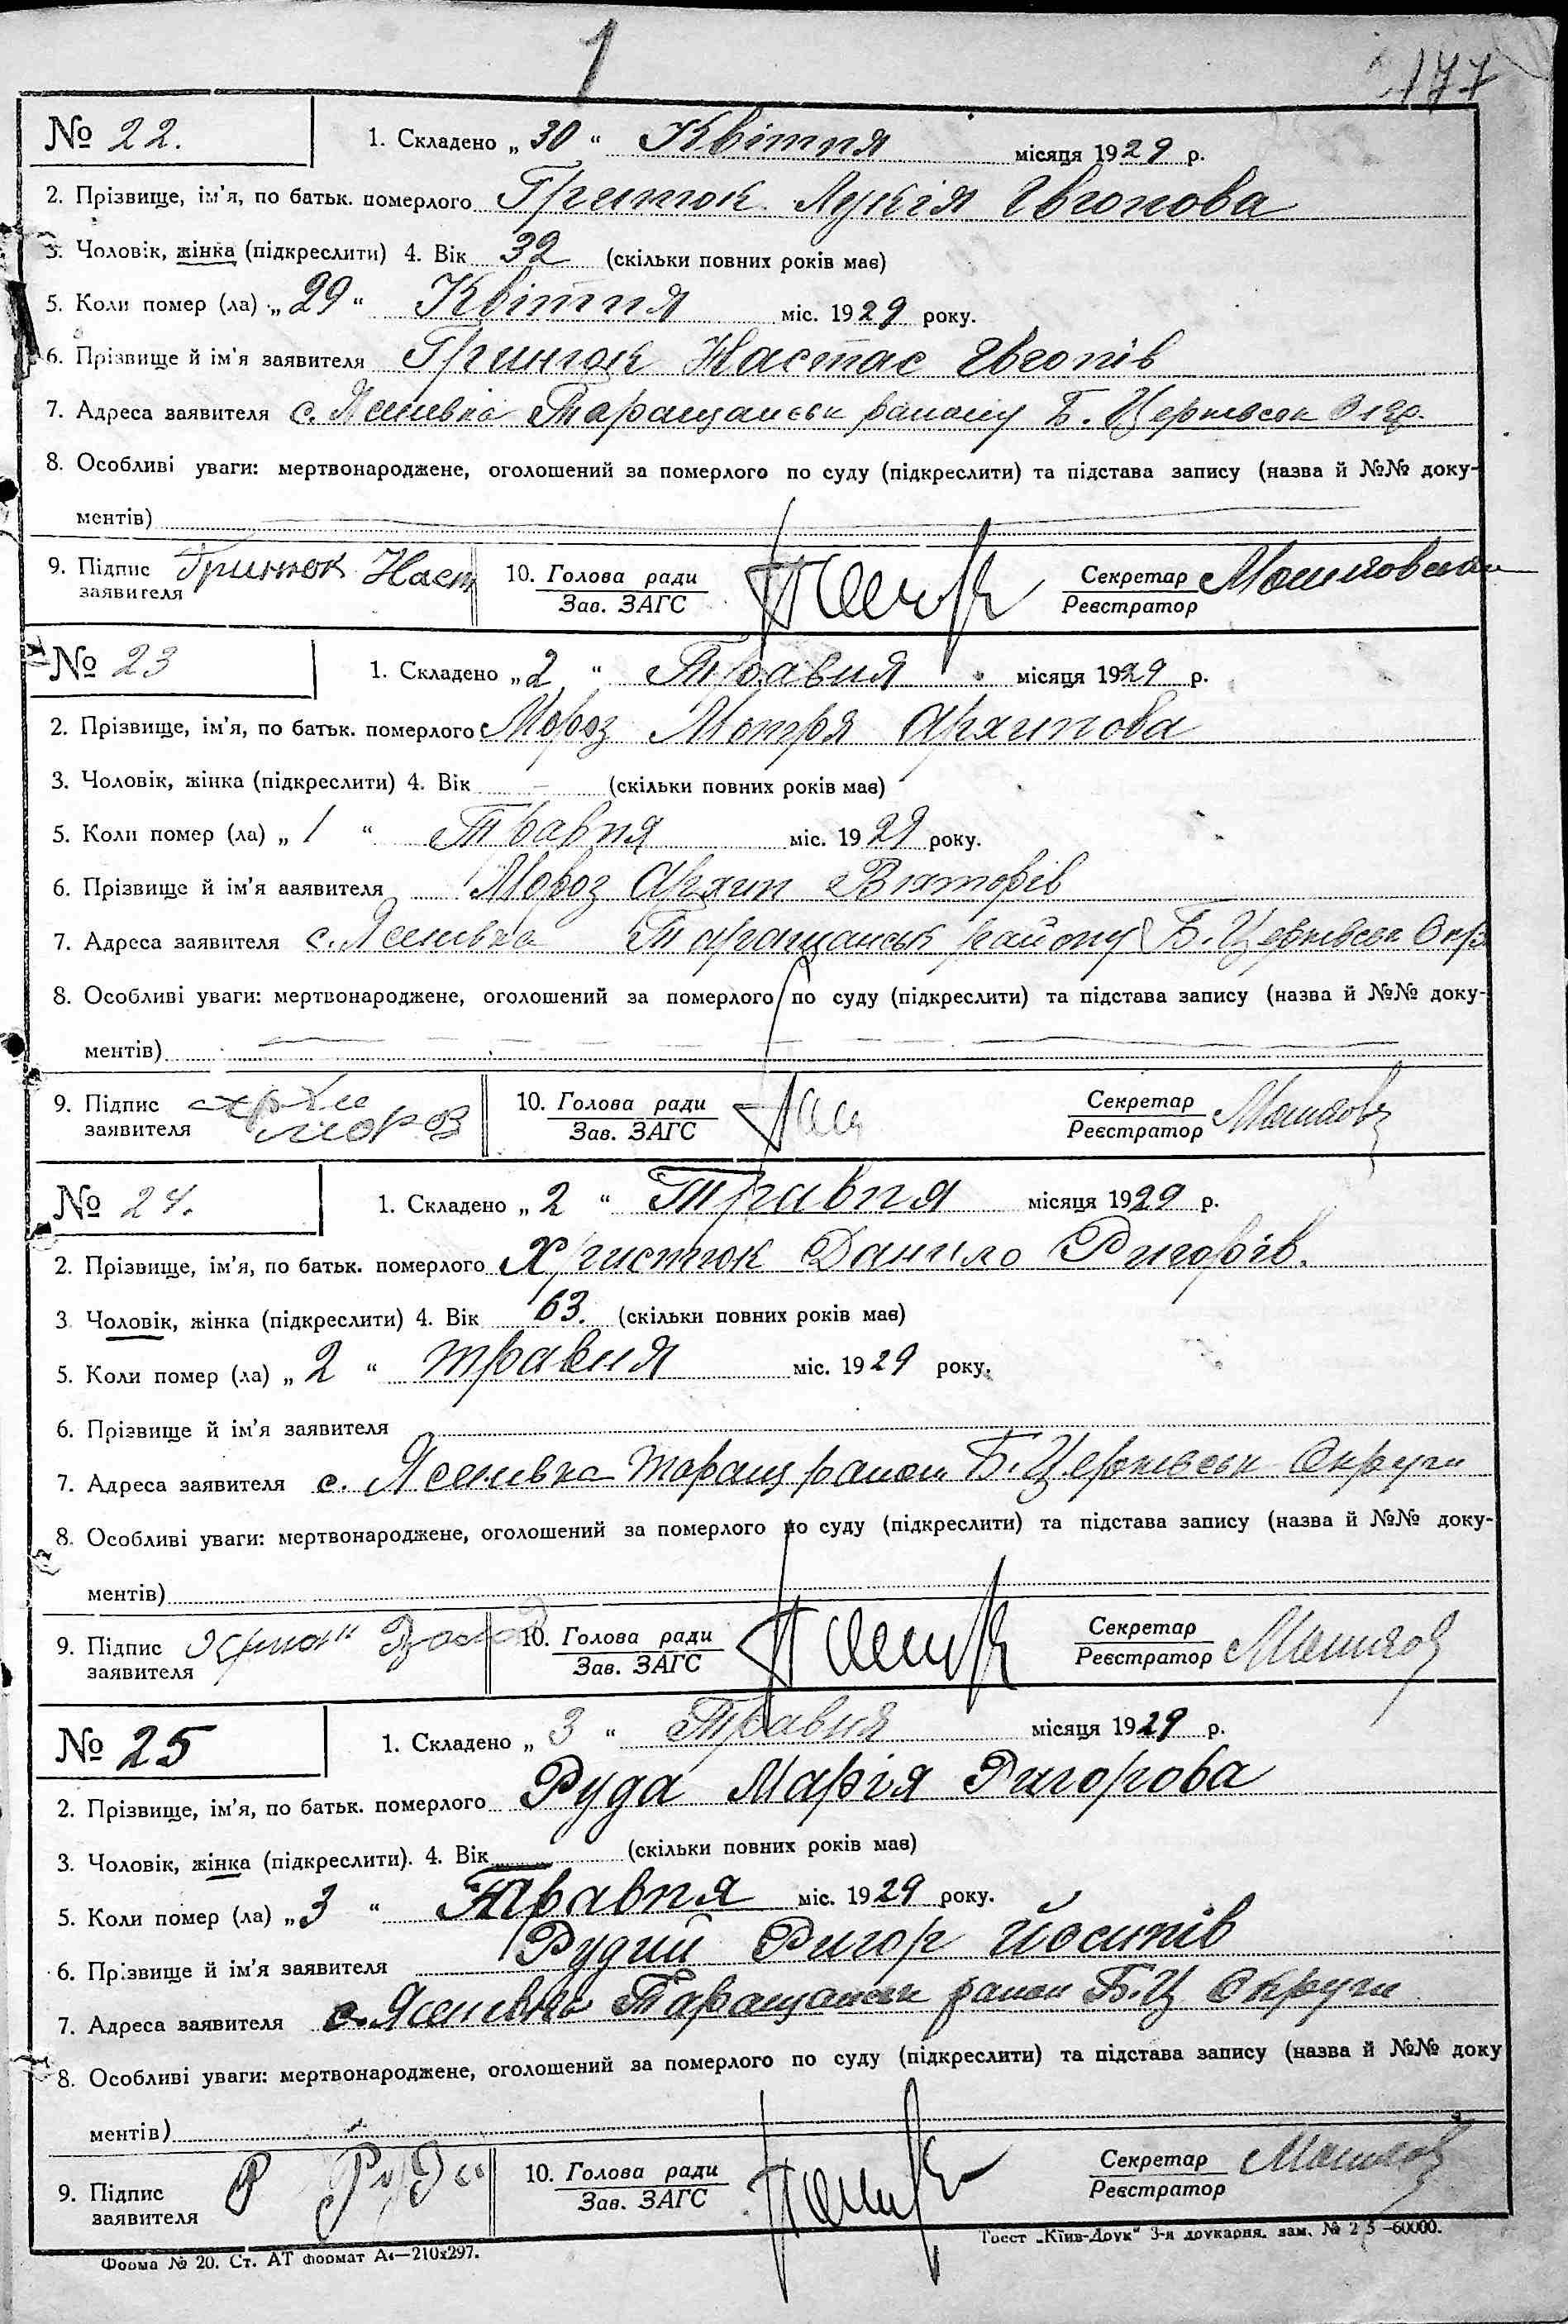 1
177
№ 22.
1. Складено „30“ Квітня місяця 1929 р.
2. Прізвище, ім'я, по батьк. померлого Гринюк Лукія Євгопова
3. Чоловік, жінка (підкреслити) 4. Вік 32 (скільки повних років має)
5. Коли помер (ла) „29“ Квітня міс. 1929 року.
6. Прізвище й ім'я заявителя Гринюк Настас Євгопів
7. Адреса заявителя с. Ясенівка Таращанськ району Б. Церківськ
8. Особливі уваги: мертвонароджене, оголошений за померлого по суду (підкреслити) та підстава запису (назва й №№ доку-
ментів)
9. Підпис заявителя Гринюк Наст 10. Голова ради Зав. ЗАГС Секретар Реєстратор
№ 23
1. Складено „2“ Травня місяця 1929 р.
2. Прізвище, ім'я, по батьк. померлого Мороз Мотря Архипова
3. Чоловік, жінка (підкреслити) 4. Вік – (скільки повних років має)
5. Коли помер (ла) „1“ Травня міс. 1929 року.
6. Прізвище й ім'я заявителя Мороз Архип Вікторів
7. Адреса заявителя с. Ясенівка Таращанськ району Б. Церківськ Окр
8. Особливі уваги: мертвонароджене, оголошений за померлого по суду (підкреслити) та підстава запису (назва й №№ доку-
ментів)
9. Підпис заявителя мороз 10. Голова ради Зав. ЗАГС Секретар Реєстратор
№ 24.
1. Складено „2“ Травня місяця 1929 р.
2. Прізвище, ім'я, по батьк. померлого Христюк Данило Ригорів.
3. Чоловік, жінка (підкреслити) 4. Вік 63. (скільки повних років має)
5. Коли помер (ла) „2“ травня міс. 1929 року.
6. Прізвище й ім'я заявителя
7. Адреса заявителя с. Ясенівка Таращ район Б. Церківськ Округи
8. Особливі уваги: мертвонароджене, оголошений за померлого по суду (підкреслити) та підстава запису (назва й №№ доку-
ментів)
9. Підпис заявителя 10. Голова ради Зав. ЗАГС Секретар Реєстратор
№ 25
1. Складено „3“ Травня місяця 1929 р.
2. Прізвище, ім'я, по батьк. померлого Руда Марія Ригорова
3. Чоловік, жінка (підкреслити). 4. Вік — (скільки повних років має)
5. Коли помер (ла) „3“ Травня міс. 1929 року.
6. Прізвище й ім'я заявителя Рудий Ригор Йосипів
7. Адреса заявителя с. Ясенівка Таращанськ район Б.Ц Округи
8. Особливі уваги: мертвонароджене, оголошений за померлого по суду (підкреслити) та підстава запису (назва й №№ доку
ментів)
9. Підпис заявителя Р 10. Голова ради Зав. ЗАГС Секретар Реєстратор
Форма № 20. Ст. АТ формат А₄—210x297.
Тоест „Київ-Друк“ 3-я друкарня, зам. № 2 5 —60000.